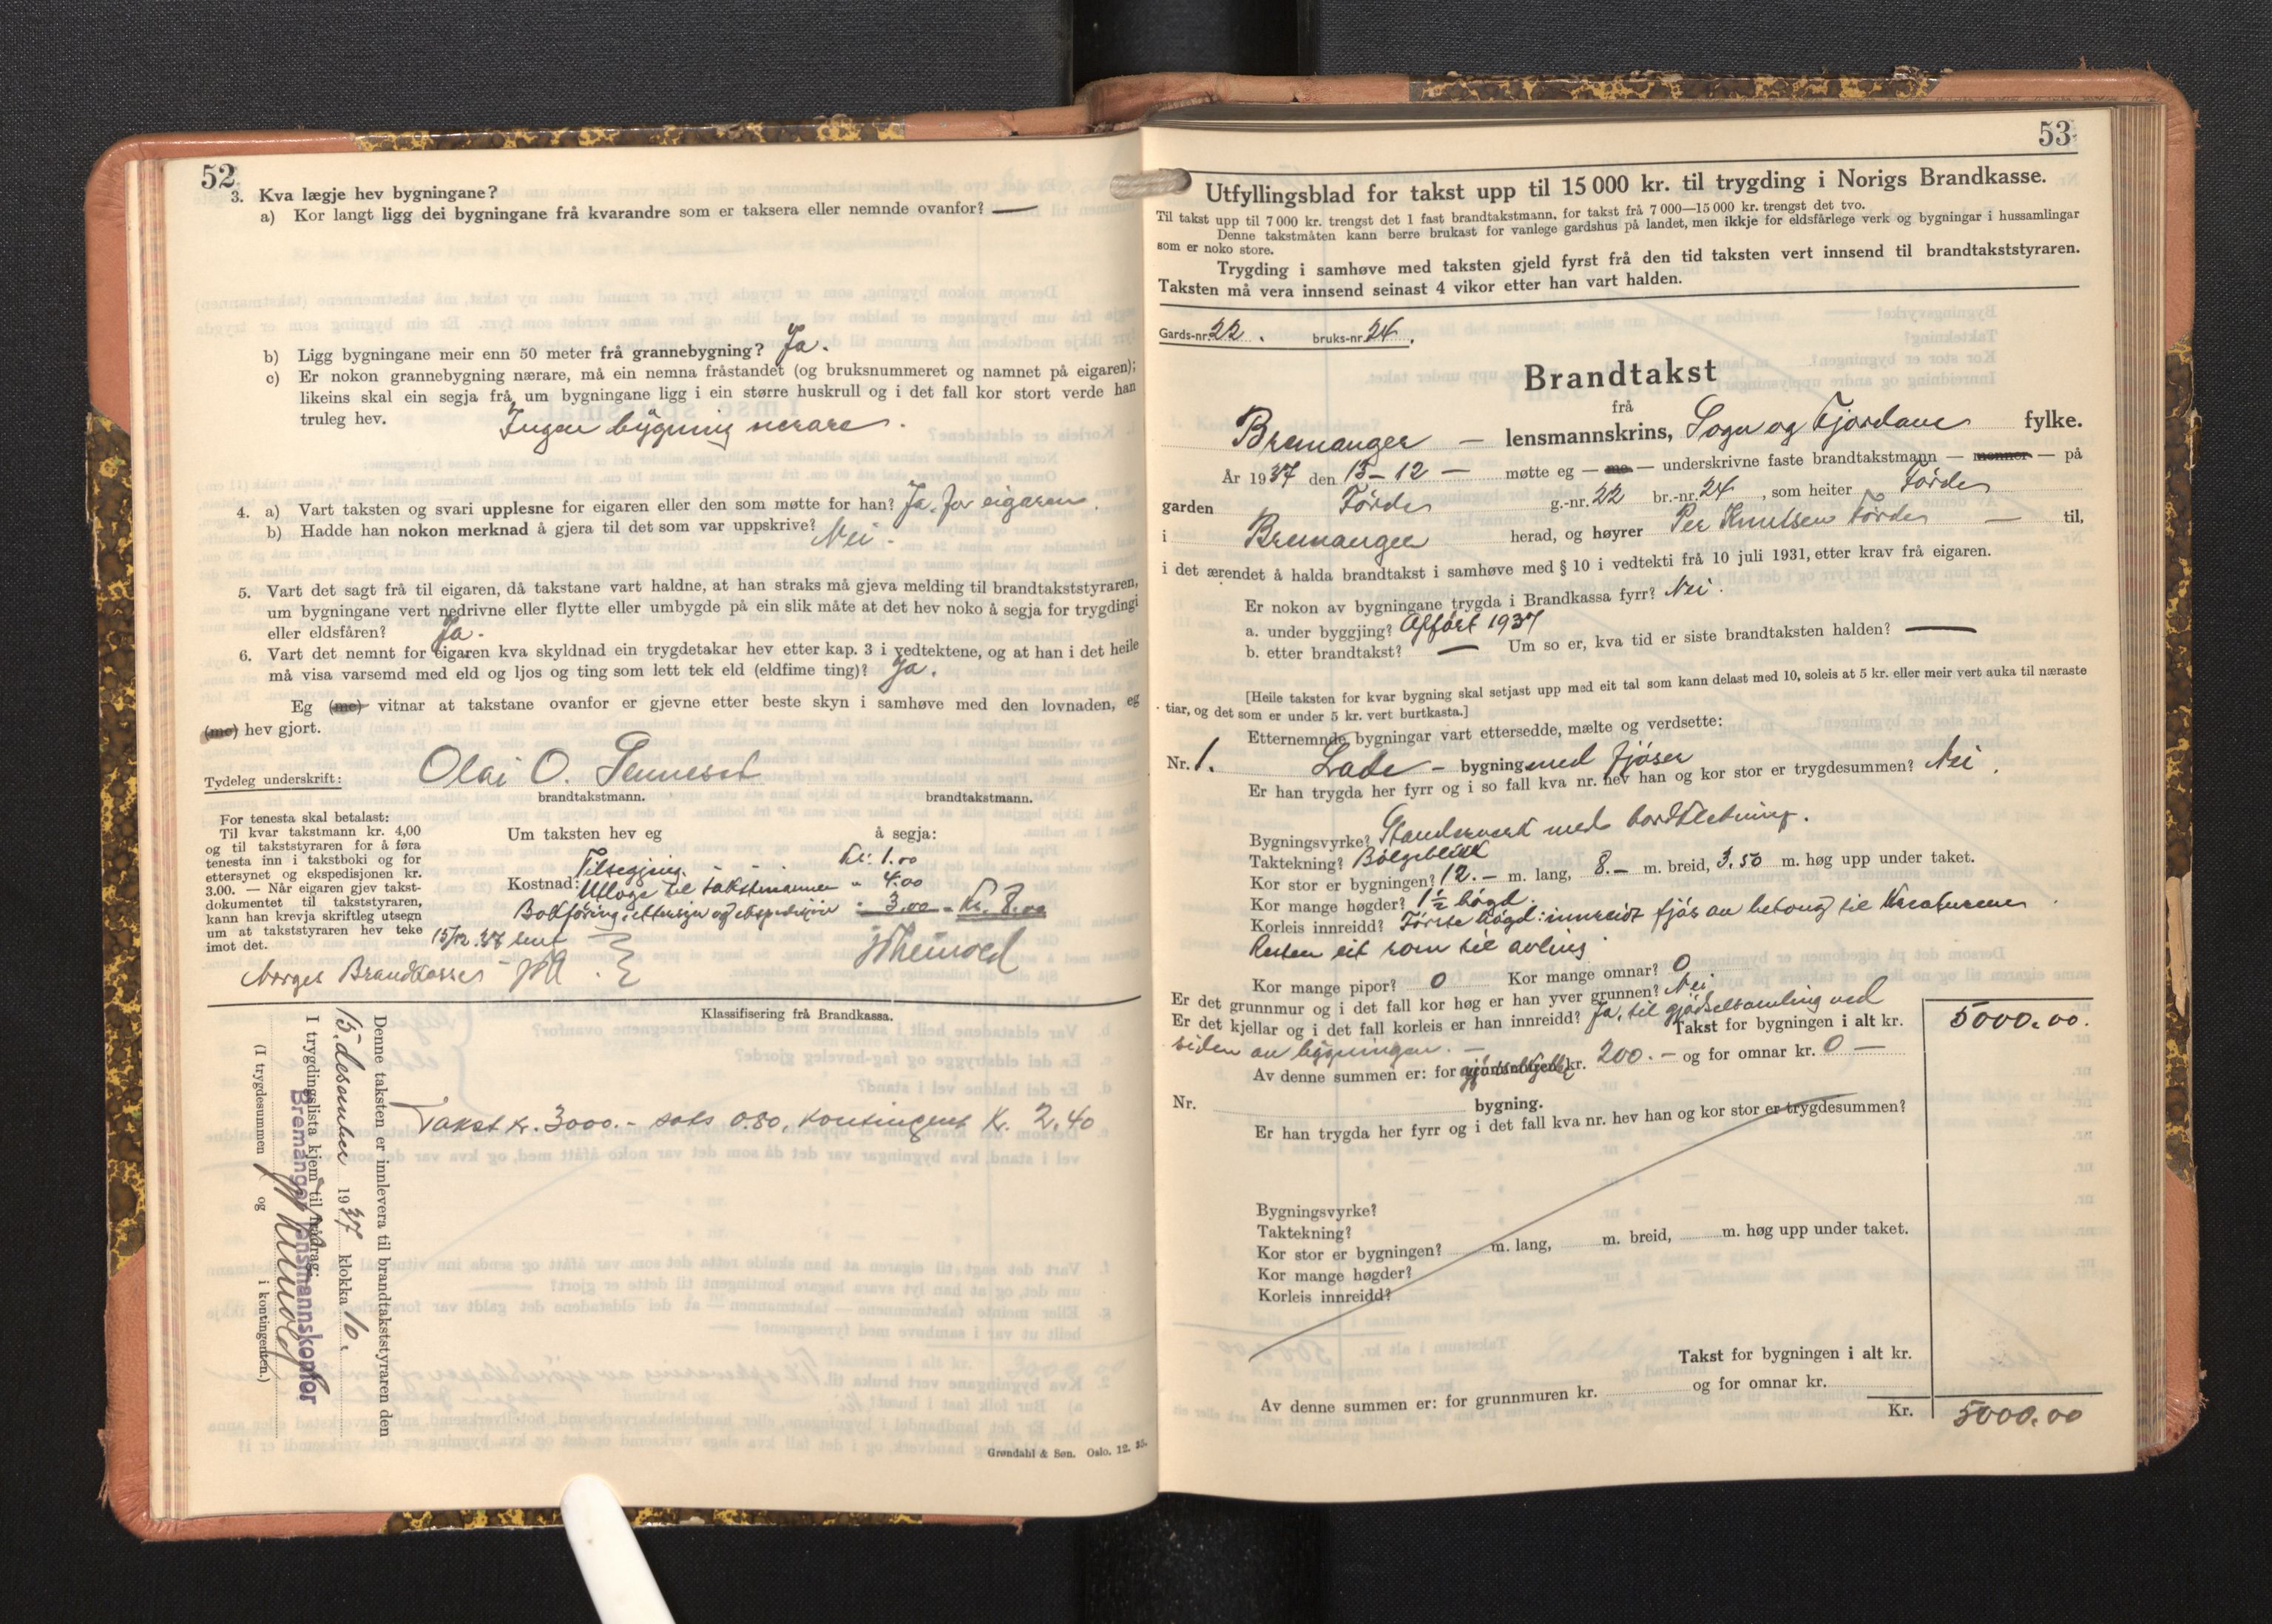 52
3. Kva lægje hev bygningane?
a) Kor langt ligg dei bygningane frå kvarandre som er taksera eller nemnde ovanfor? —
b) Ligg bygningane meir enn 50 meter frå grannebygning? Ja.
c) Er nokon grannebygning nærare, må ein nemna fråstandet (og bruksnummeret og namnet på eigaren);
likeins skal ein segja frå um bygningane ligg i ein større huskrull og i det fall kor stort verde han
truleg hev. Ingen bygning nerare.
4. a) Vart taksten og svari upplesne for eigaren eller den som møtte for han? Ja, for eigaren.
b) Hadde han nokon merknad å gjera til det som var uppskrive? Nei.
5. Vart det sagt frå til eigaren, då takstane vart haldne, at han straks må gjeva melding til brandtakststyraren,
um bygningane vert nedrivne eller flytte eller umbygde på ein slik måte at det hev noko å segja for trygdingi
eller eldsfåren? Ja.
6. Vart det nemnt for eigaren kva skyldnad ein trygdetakar hev etter kap. 3 i vedtektene, og at han i det heile
må visa varsemd med eld og ljos og ting som lett tek eld (eldfime ting)? Ja.
Eg (me) vitnar at takstane ovanfor er gjevne etter beste skyn i samhøve med den lovnaden, eg
(me) hev gjort.
Tydeleg underskrift: Olai O.
brandtakstmann. brandtakstmann.
For tenesta skal betalast:
Til kvar takstmann kr. 4,00
og til takststyraren for å føra
tenesta inn i takstboki og for
ettersynet og ekspedisjonen kr.
3.00. — Når eigaren gjev takst-
dokumentet til takststyraren,
kann han krevja skriftleg utsegn
um at takststyraren hev teke
imot det.
Um taksten hev eg å segja:
Tilsegjing - - - Kr. 1.00
Kostnad: Utlegg til takstmannen " 4.00
Bokføring, ettersyn og ekspedisjon " 3.00 = Kr. 8.00
15/12.37 sent
Norges Brandkasse
Klassifisering frå Brandkassa.
Takst kr. 3000.- sats 0.80, kontingent kr. 2.40
Denne taksten er innlevera til brandtakststyraren den
15. desember 1937 klokka 10.
I trygdingslista kjem til frådrag:
Bremanger lensmannskontor
(I trygdesummen og i kontingenten.)
Grøndahl & Søn. Oslo. 12. 35.
53
Utfyllingsblad for takst upp til 15 000 kr. til trygding i Norigs Brandkasse.
Til takst upp til 7 000 kr. trengst det 1 fast brandtakstmann, for takst frå 7 000—15 000 kr. trengst det tvo.
Denne takstmåten kann berre brukast for vanlege gardshus på landet, men ikkje for eldsfårlege verk og bygningar i hussamlingar
som er noko store.
Trygding i samhøve med taksten gjeld fyrst frå den tid taksten vert innsend til brandtakststyraren.
Taksten må vera innsend seinast 4 vikor etter han vart halden.
Gards-nr. 22. bruks-nr. 24.
Brandtakst
frå
Bremanger — lensmannskrins, Sogn og Fjordane fylke.
År 1937 den 15-12 — møtte eg — me — underskrivne faste brandtakstmann — menner — på
garden Førde g.-nr. 22 br.-nr. 24, som heiter Førde
i Bremanger herad, og høyrer Per Knutsen Førde — til,
i det ærendet å halda brandtakst i samhøve med § 10 i vedtekti frå 10 juli 1931, etter krav frå eigaren.
Er nokon av bygningane trygda i Brandkassa fyrr? Nei.
a. under byggjing? Opført 1937
b. etter brandtakst? — Um so er, kva tid er siste brandtaksten halden? —
[Heile taksten for kvar bygning skal setjast upp med eit tal som kann delast med 10, soleis at 5 kr. eller meir vert auka til næraste
tiar, og det som er under 5 kr. vert burtkasta.]
Etternemnde bygningar vart ettersedde, mælte og verdsette:
Nr. 1. Lade - bygning med fjøser
Er han trygda her fyrr og i so fall kva nr. hev han og kor stor er trygdesummen? Nei.
Bygningsvyrke? Standerverk med bordkledning.
Taktekning? Bølgeblikk
Kor stor er bygningen? 12.- m. lang, 8.- m. breid, 3.50 m. høg upp under taket.
Kor mange høgder? 1½ høgd.
Korleis innreidd? Første høgd: innreidt fjøs av betong til kreaturene.
Resten eit rom til avling.
Kor mange pipor? 0 Kor mange omnar? 0
Er det grunnmur og i det fall kor høg er han yver grunnen? Nei
Er det kjellar og i det fall korleis er han innreidd? Ja, til gjødselsamling ved
siden av bygningen. - Takst for bygningen i alt kr. 5000.00.
Av denne summen er: for gjødselkjeller kr. 200.- og for omnar kr. 0 —
Nr. bygning.
Er han trygda her fyrr og i det fall kva nr. hev han og kor stor er trygdesummen?
Bygningsvyrke?
Taktekning?
Kor stor er bygningen? m. lang, m. breid, m. høg upp under taket.
Kor mange høgder?
Korleis innreidd?
Takst for bygningen i alt kr.
Av denne summen er: for grunnmuren kr. og for omnar kr.
Kr. 5000.00